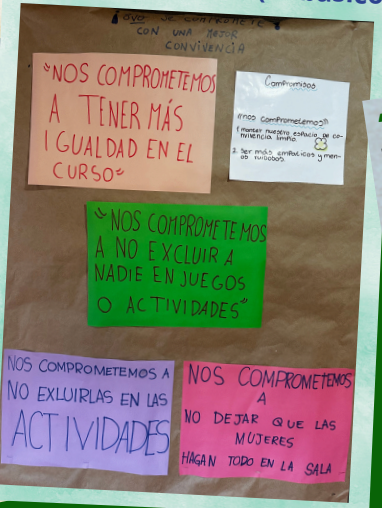 SE COMPROMETE
CON UNA MEJOR
CONVIVENCIA
"NOS COMPROMETEMOS
A TENER MÁS
IGUALDAD EN EL
CURSO"
Compromisos
¡¡nos comprometemos!!
1 mantener nuestro espacio de co-
nvivencia limpio.
2. Ser más empaticos y men-
os ruidosos.
"NOS COMPROMETEMOS
A NO EXCLUIR A
NADIE EN JUEGOS
O ACTIVIDADES"
NOS COMPROMETEMOS A
NO EXLUIRLAS EN LAS
ACTIVIDADES
NOS COMPROMETEMOS
A
NO DEJAR QUE LAS
MUJERES
HAGAN TODO EN LA SALA